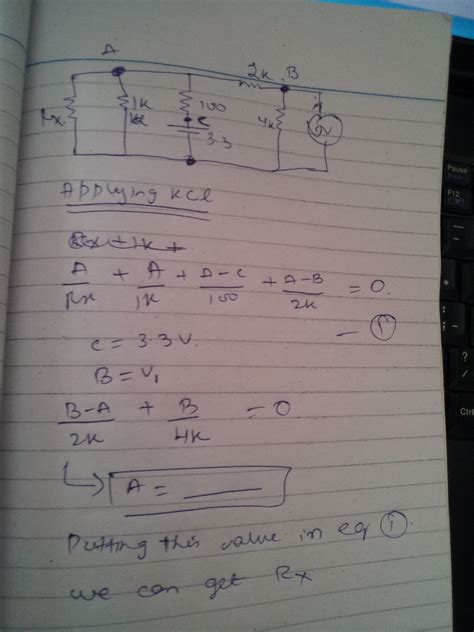 A
2k B
Rx 1k 100 4k
C
3.3
Applying KCL
Rx + 1k +
A/Rx + A/1k + A-C/100 + A-B/2k = 0.
— (1)
C = 3.3V.
B = V₁
B-A/2k + B/4k = 0.
↳ A = ____
Putting this value in eq (1)
we can get Rx
F12
Ctrl